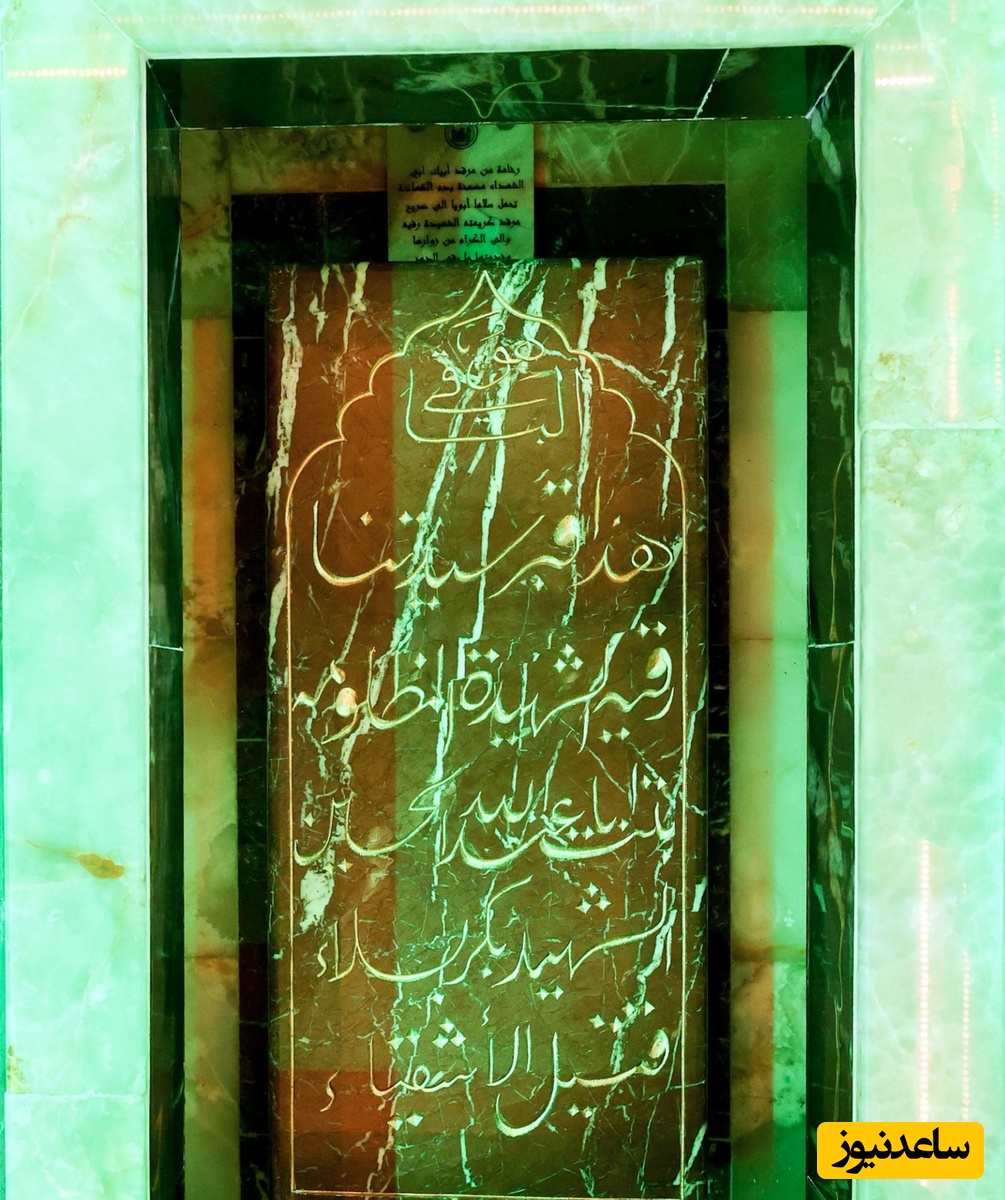 رخامة من مرقد أبيك أبي
الشهداء مضمخة بدم الشهادة
تحمل سلاما أبويا الى ضريح
مرقد كريمته الشهيدة رقيه
والى الكرام من زوارها
هو
الباقي
هذا قبر سيدتنا
رقيه الشهيدة المظلومه
بنت ابا عبد الله الحسين
الشهيد بكربلاء
قتيل الأشقياء
ساعدنیوز